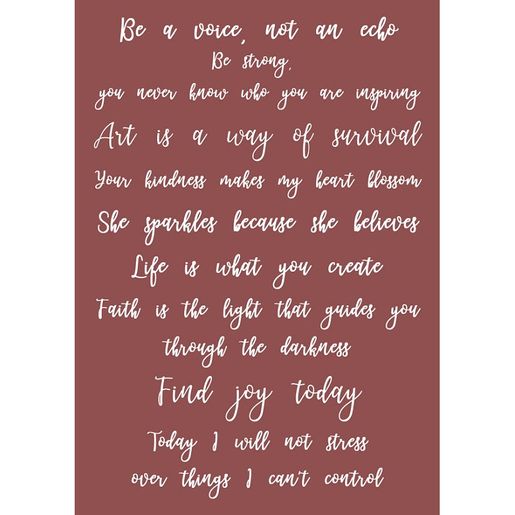 Be a voice, not an echo
Be strong,
you never know who you are inspiring
Art is a way of survival
Your kindness makes my heart blossom
She sparkles because she believes
Life is what you create
Faith is the light that guides you
through the darkness
Find joy today
Today I will not stress
over things I can't control